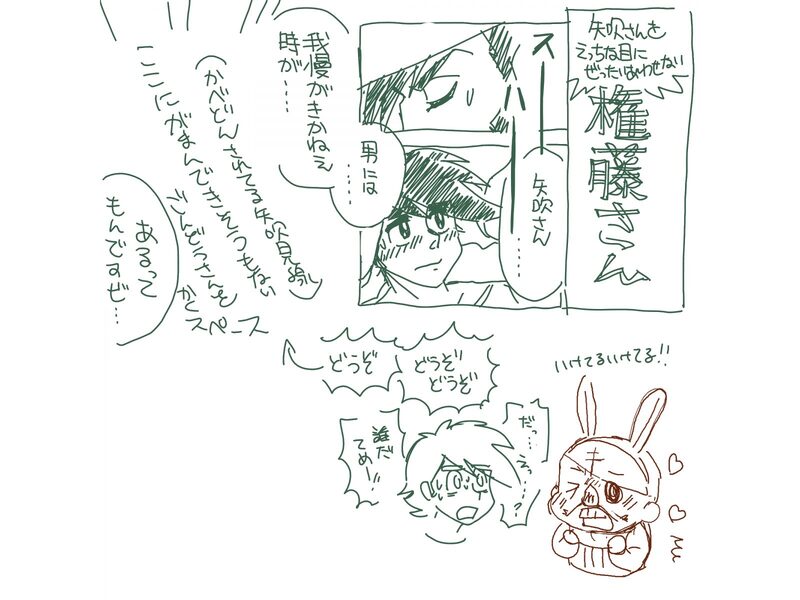 矢吹さんを
えっちな目に
ぜったいあわせない
権藤さん
スパ
矢吹さん
……
男には
……
我慢がきかねえ
時が……
あるって
もんですぜ…
(かべどんされてる矢吹見場)
ここにがまんできそうもない
ごんどうさんを
かくスペース
どうぞ
どうぞ
どうぞ
だっ…えっ
……?
誰だ
てめー!!
いけてるいけてる!!